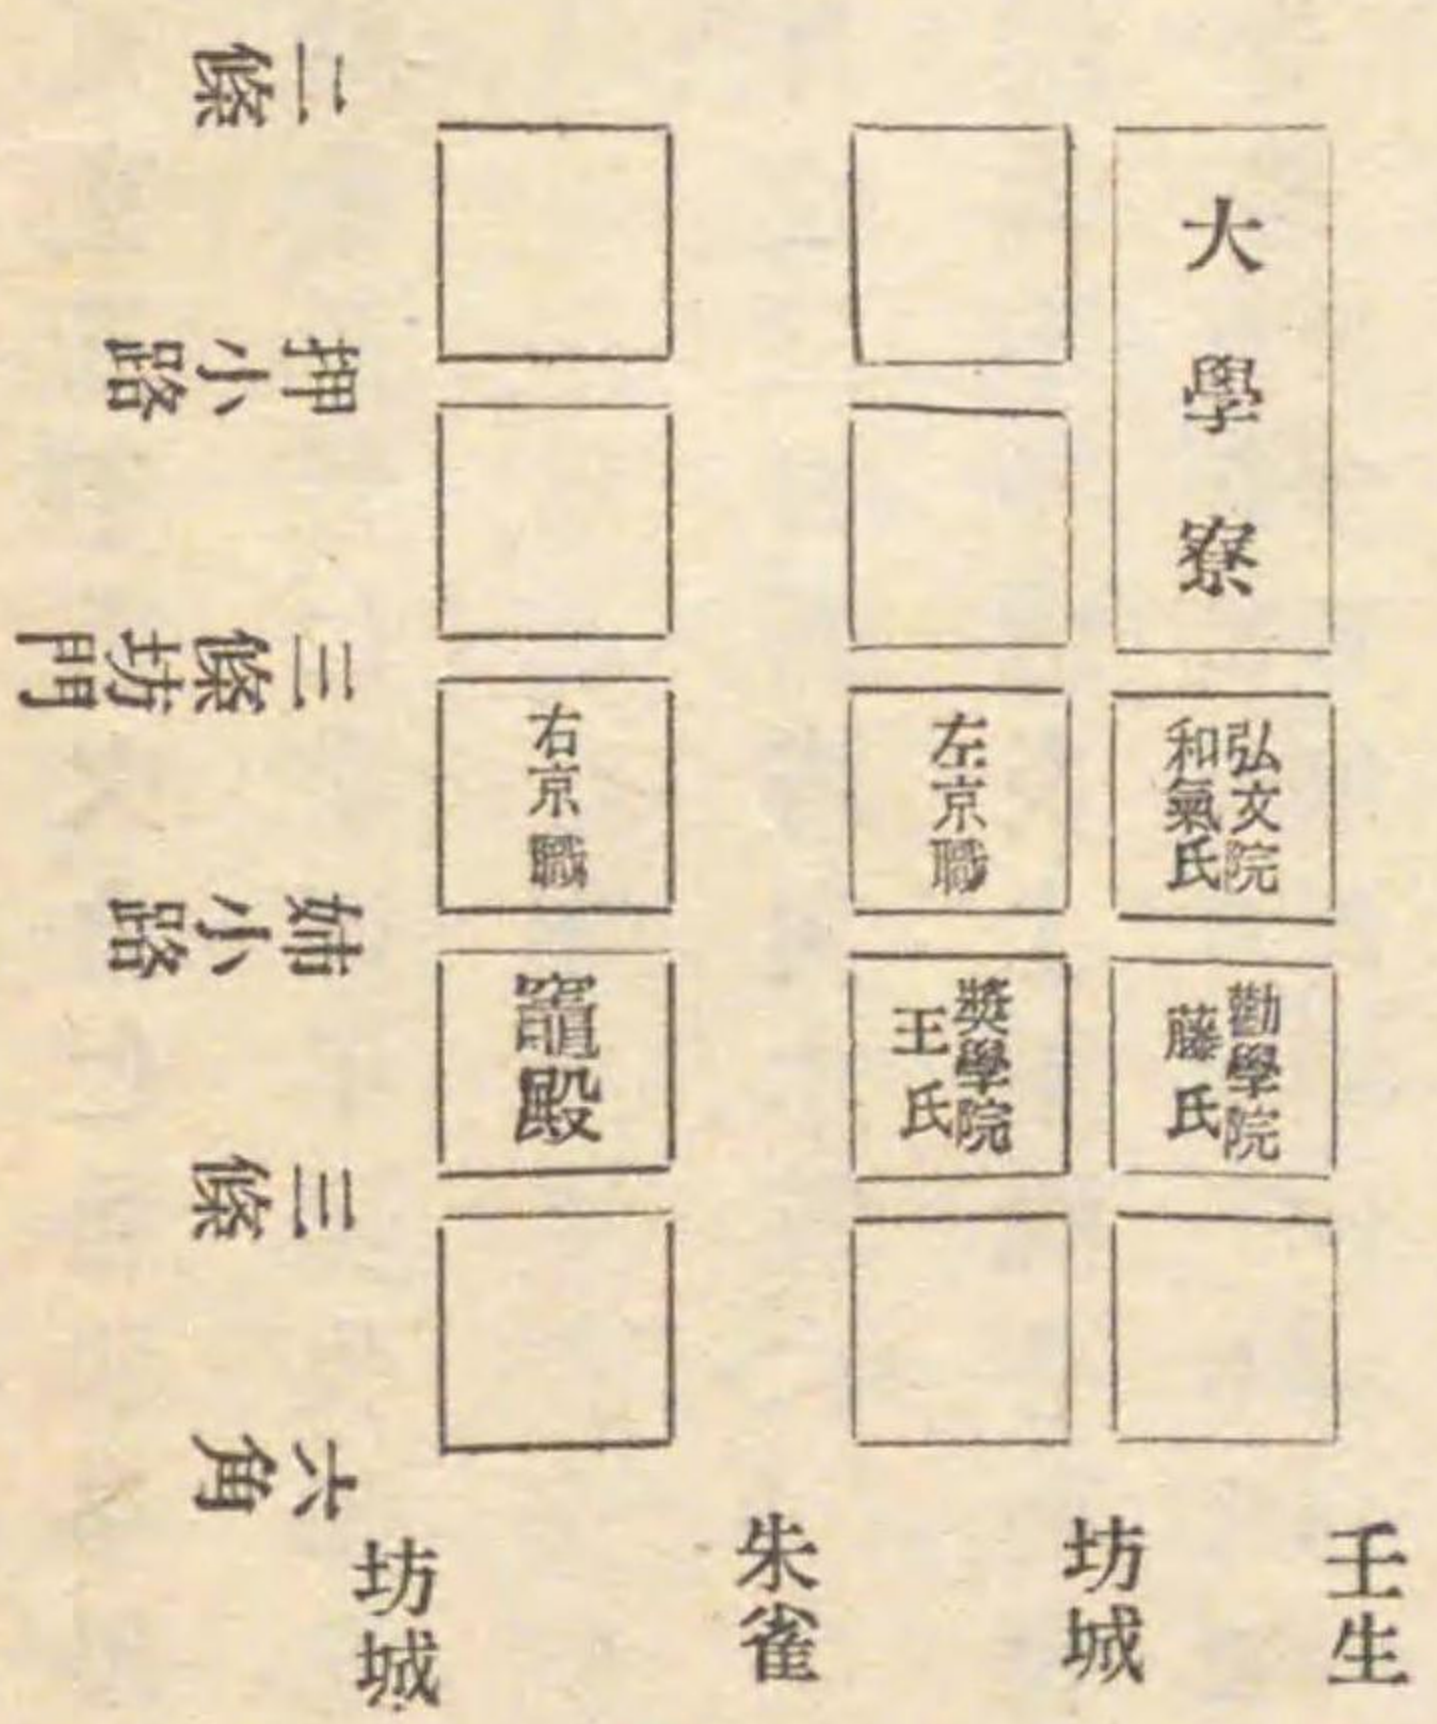 大學寮
弘文院
和氣氏
勸學院
藤氏
左京職
奬學院
王氏
右京職
竈殿
二條
押小路
三條坊門
姉小路
三條
六角
壬生
坊城
朱雀
坊城